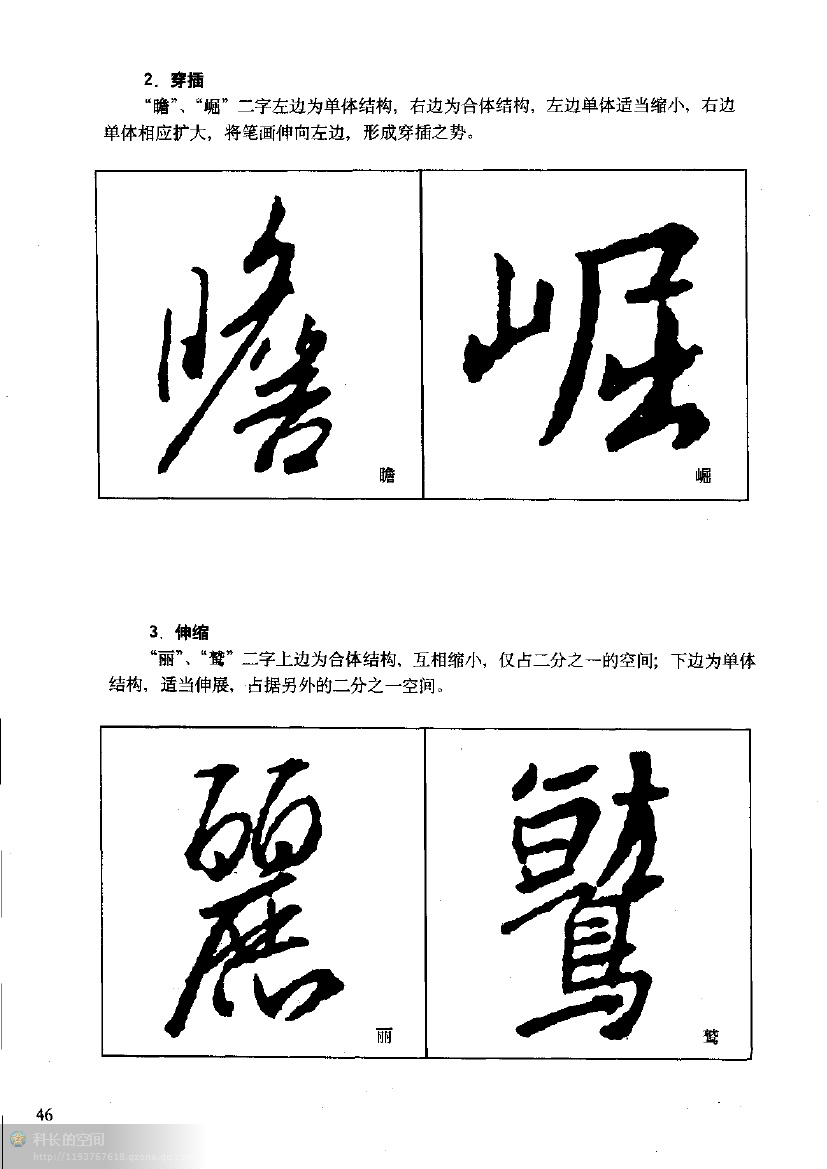 2．穿插
“瞻”、“崛”二字左边为单体结构，右边为合体结构，左边单体适当缩小，右边
单体相应扩大，将笔画伸向左边，形成穿插之势。
瞻 崛
瞻 崛
3．伸缩
“丽”、“鹫”二字上边为合体结构，互相缩小，仅占二分之一的空间；下边为单体
结构，适当伸展，占据另外的二分之一空间。
麗
丽
46
科长的空间
http://1193767618.qzone.qq.co